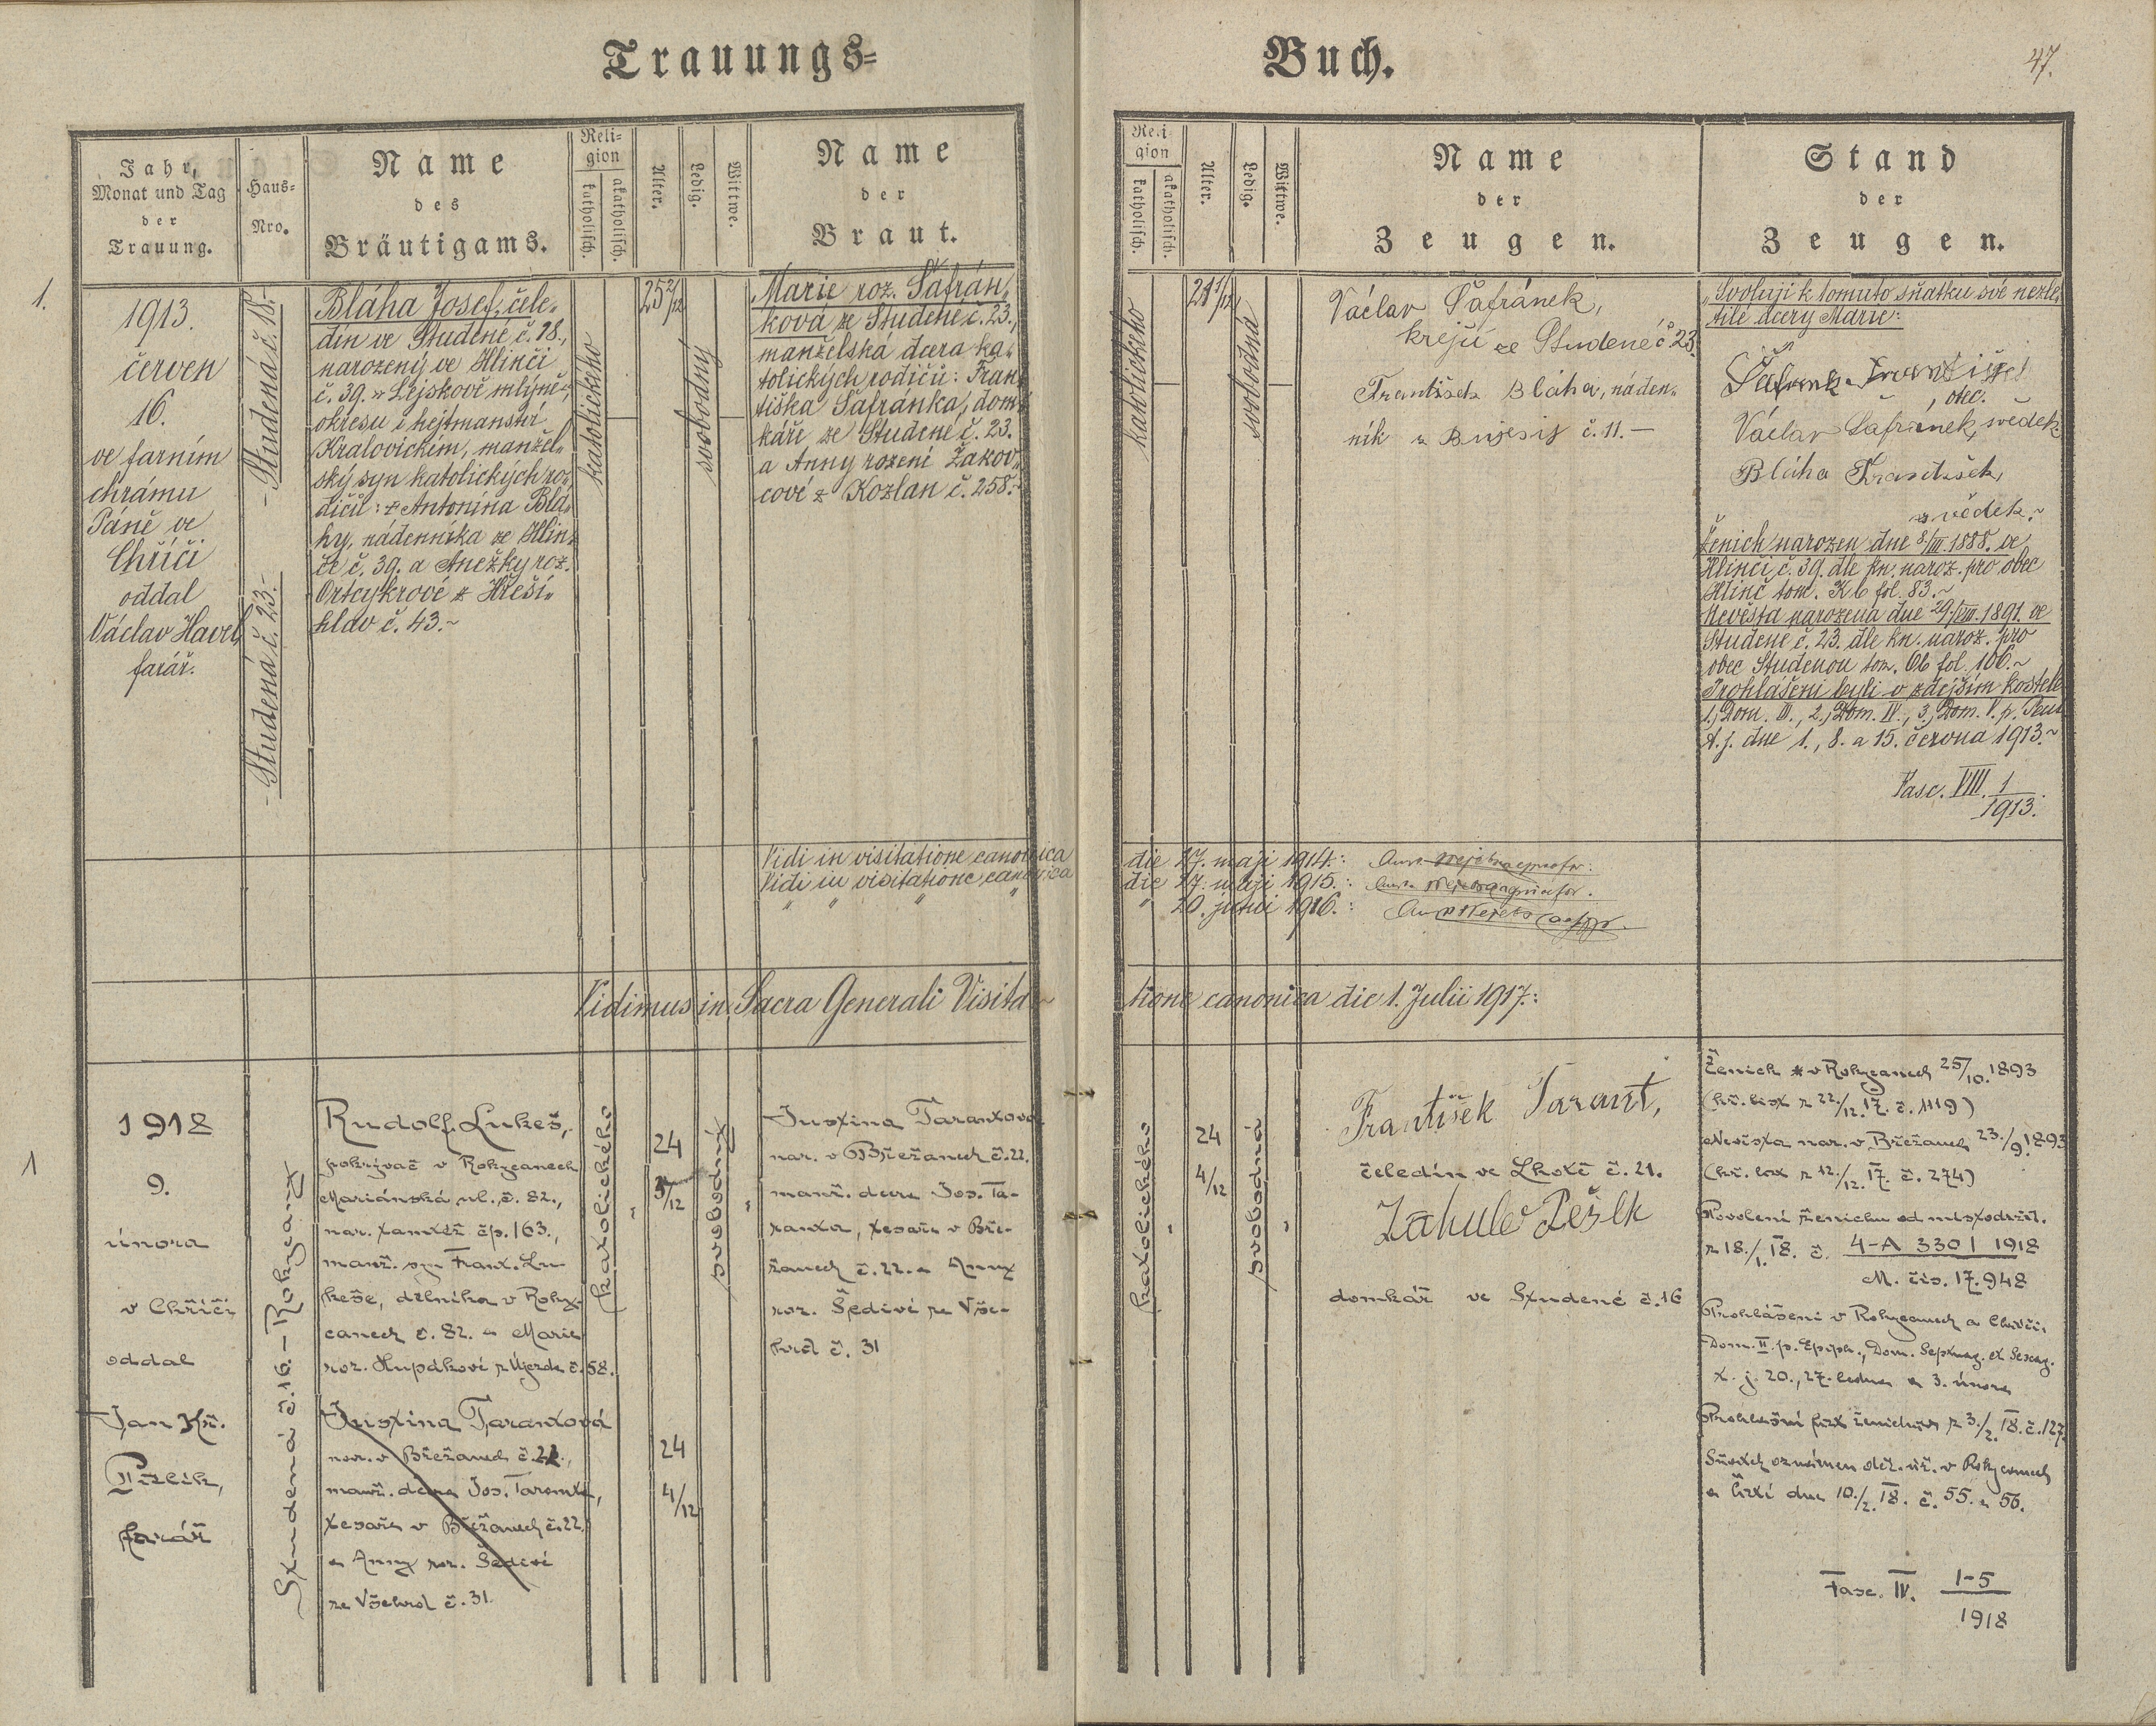 Trauungs=
Buch.
47.
Jahr,
Monat und Tag
der
Trauung.
Haus=
Nro.
Name
des
Bräutigams.
Reli=
gion
katholisch.
akatholisch.
Alter.
Ledig.
Wittwe.
Name
der
Braut.
Reli
gion
katholisch.
akatholisch.
Alter.
Ledig.
Wittwe.
Name
der
Zeugen.
Stand
der
Zeugen.
1.
1913.
červen
16.
ve farním
chrámu
Páně ve
Chříči
oddal
Václav Havel,
farář.
- Studená č. 18.-
- Studená č. 23.-
Bláha Josef, čele„
dín ve Studené č. 18.,
narozený ve Hlinči
č. 39. „Lejskově mlýně“,
okresu i hejtmanství
Kralovickém, manžel„
ský syn katolických ro„
dičů: + Antonína Blá„
hy, nádenníka ze Hlin„
če č. 39. a Anežky roz.
Ortcykrové z Hřeší„
hlav č. 43.~
katolického
25 2/12
svobodný
Marie roz. Šafrán„
ková ze Studené č. 23.,
manželská dcera ka„
tolických rodičů: Fran„
tiška Šafránka, dom„
káře ze Studené č. 23.
a Anny rozené Žakov„
cové z Kozlan č. 258.~
katolického
21
svobodná
Václav Šafránek,
krejčí ze Studené č 23.
František Bláha, náden„
ník z Bujesis č. 11. —
„Svoluji k tomuto sňatku své nezle„
tilé dcery Marie:
Šafrank František
, otec.
Václav Šafránek, svědek
Bláha František,
svědek.~
Ženich narozen dne 8/III. 1888. ve
Hlinči č. 39. dle kn. naroz. pro obec
Hlinč tom. fol. 83.~
Nevěsta narozena dne 29./VIII. 1891. ve
Studené č. 23. dle kn. naroz. pro
obec Studenou tom. fol. 106.~
Prohlášeni byli v zdejším kostele
1., Dom. III., 2., Dom. IV., 3., Dom. V. p. Pent
t. j. dne 1., 8. a 15. června 1913.~
Fasc. VIII. 1
1913.
Vidi in visitatione canonica die 27. maji 1914.:
Vidi in visitatione canonica die 27. maji 1915.:
„ „ „ „ 20. junii 1916.:
Vidimus in Sacra Generali Visita~tione canonica die 1. Julii 1917.:
1
1918
9.
února
v Chříči
oddal
Jan Kř.
farář
Studená č. 16. — Rokycany
Rudolf Lukeš,
pokrývač v Rokycanech
Mariánská ul. č. 82.,
nar. tamtéž čp. 163.,
manž. syn Frant. Lu-
keše, dělníka v Roky-
canech č. 82. a Marie
roz. z Újezda č. 58.
Justina Tarantová
nar. v Břežanech č. 22.,
manž. dcera Jos. Taranta,
tesaře v Břežanech č. 22.
a Anny roz. Šedivé
ze Všehrd č. 31.
katolického
24
3/12
24
4/12
svobodný
Justina Tarantová
nar. v Břežanech č. 22.
manž. dcera Jos. Ta-
ranta, tesaře v Bře-
žanech č. 22. a Anny
roz. Šedivé ze Vše-
hrd č. 31
katolického
24
4/12
svobodná
František Tarant,
čeledín ve Lhotě č. 21.
domkář ve Studené č. 16
Ženich * v Rokycanech 25/10. 1893
(kř. list z 22./12. 17. č. 1119)
Nevěsta nar. v Břežanech 23./9. 1893
(kř. list z 12./12. 17. č. 274)
Povolení ženichu od místodrž.
z 18./1. 18. č. 4-A 330 / 1918
M. čís. 17.948
Prohlášeni v Rokycanech a Chříči,
Dom. II. p. Epiph., Dom. Septuag. et Sexag.
t. j. 20., 27. ledna a 3. února
z 3./2. 18. č. 127.
Sňatek oznámen v Rokycanech
a dne 10./2. 18. č. 55. a 56.
Fasc. IV. 1-5
1918